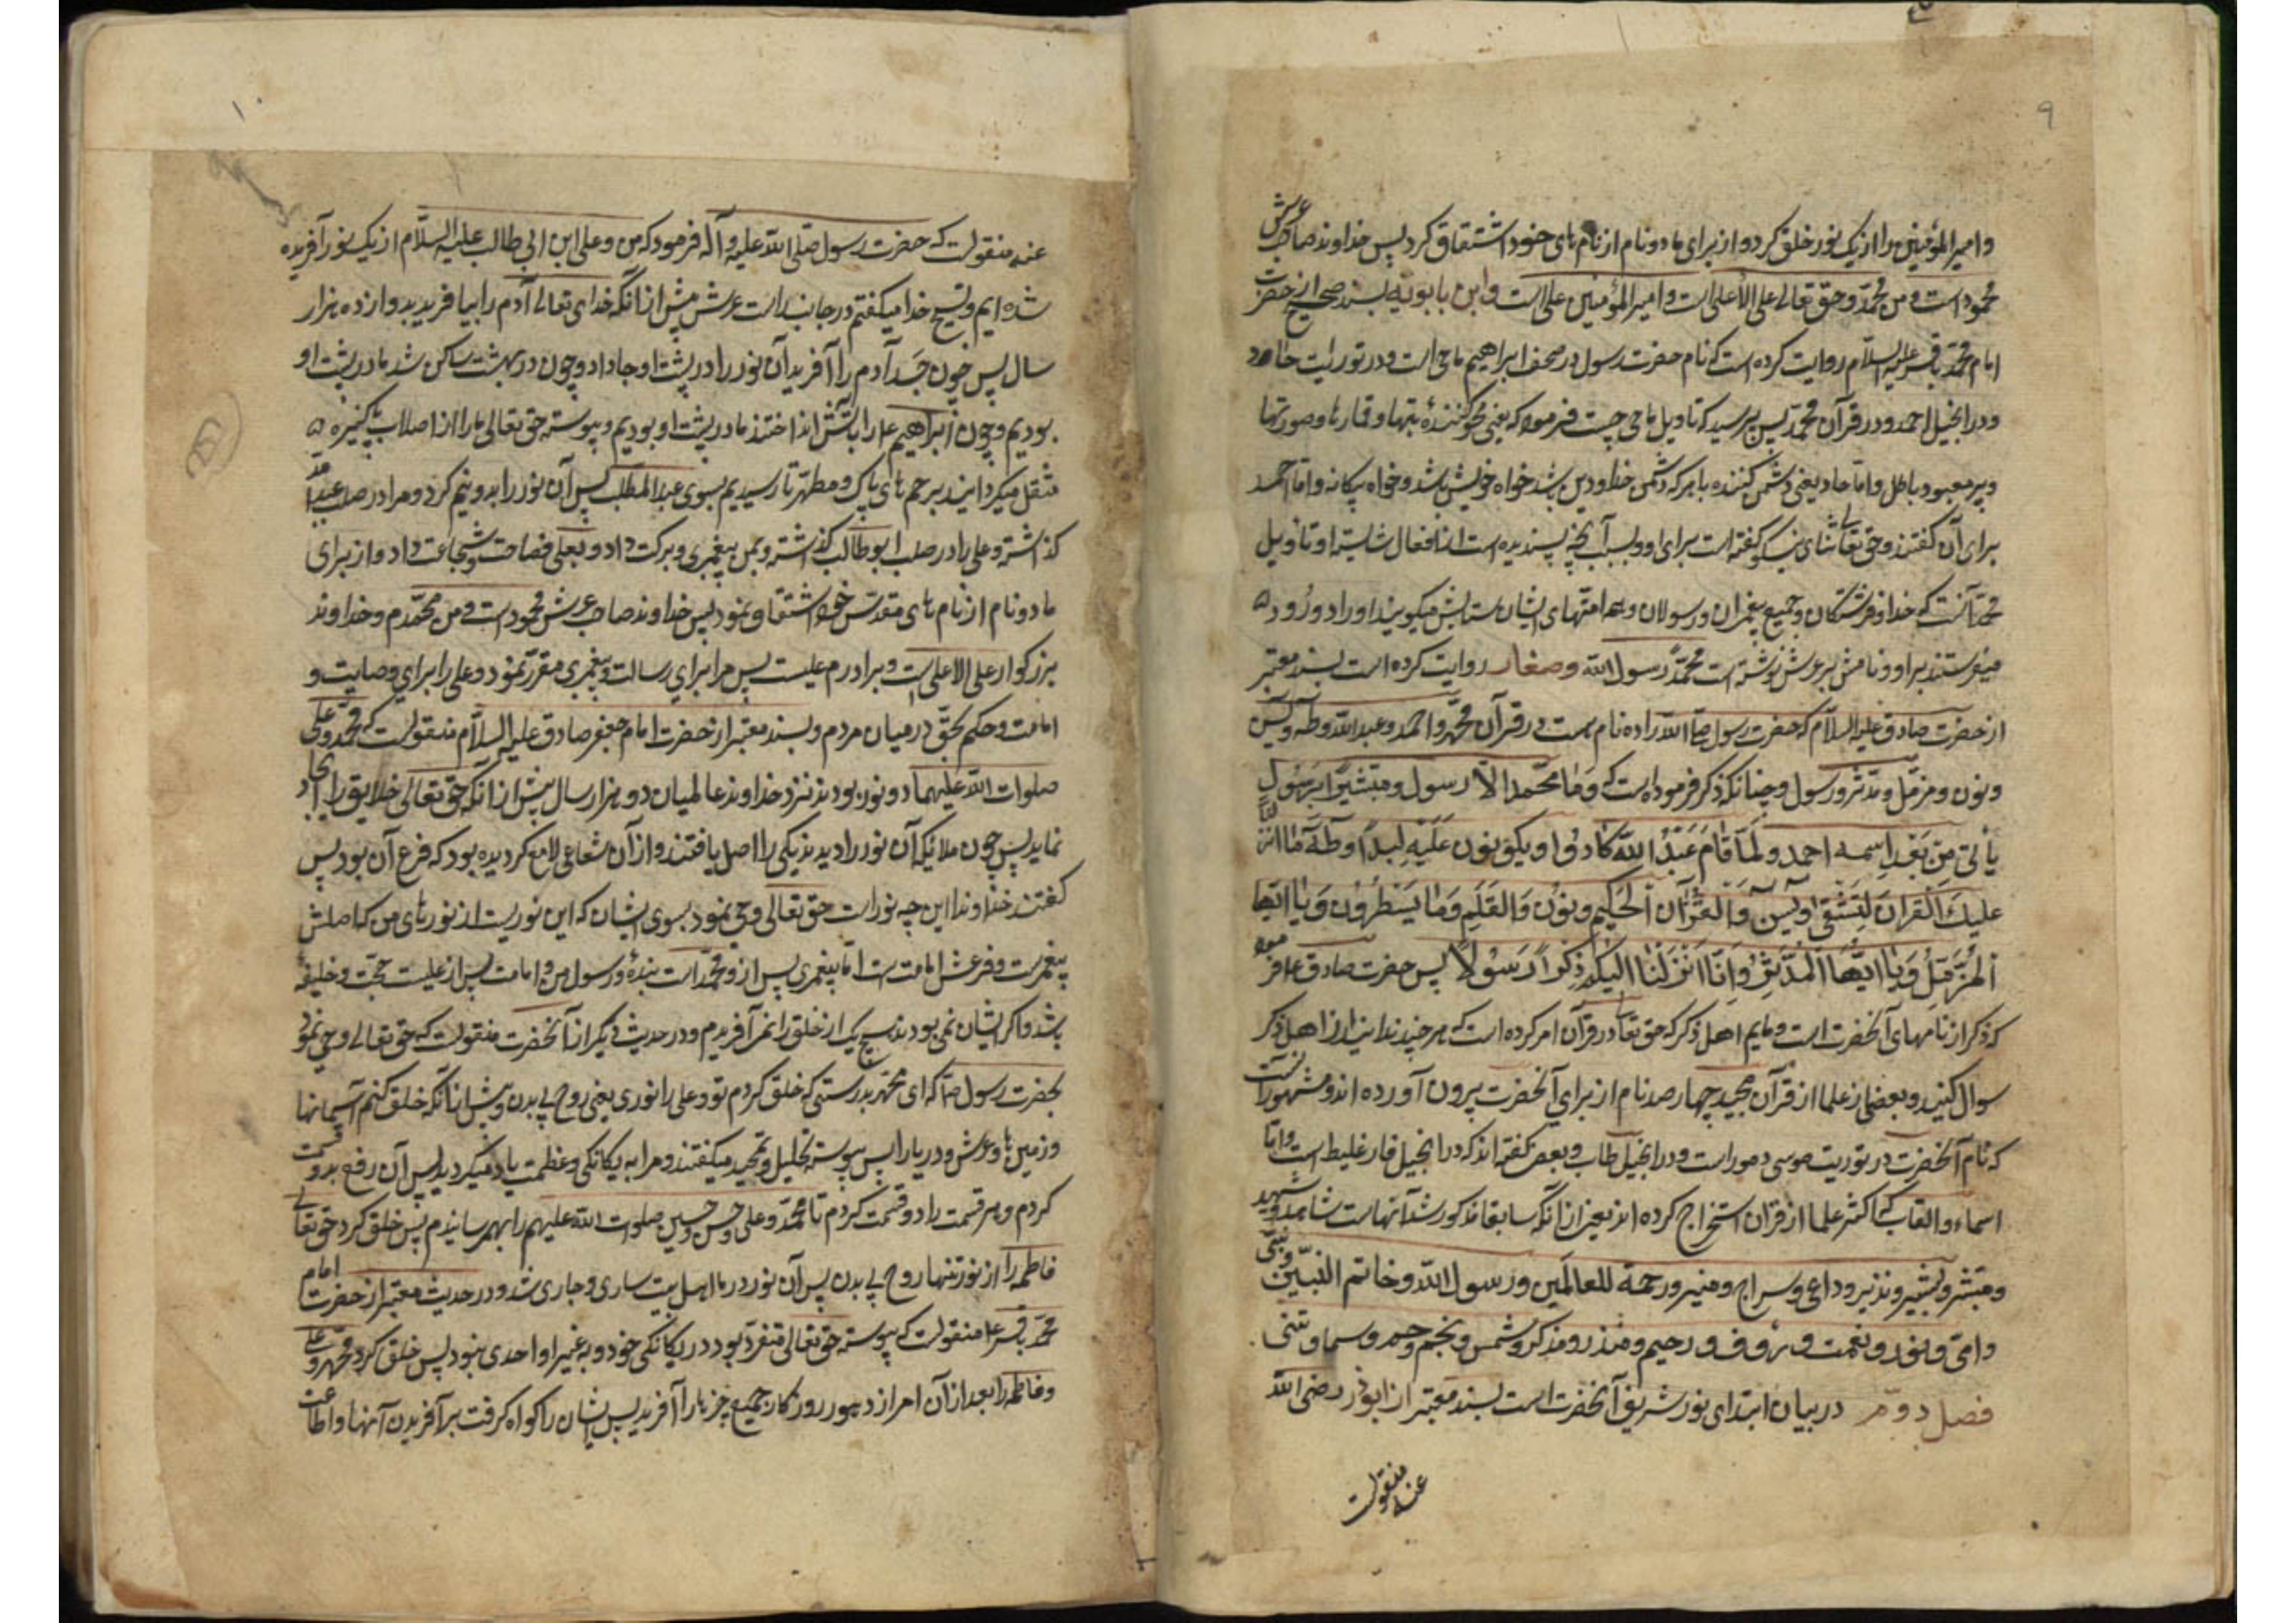 ۹
وامیرالمؤمنین را از یک نور خلق کرد و از برای ما دو نام از نام های خود اشتقاق کرد پس خداوند صاحب عرش
محمود است و من محمد و حق تعالی علی الاعلی است و امیرالمؤمنین علی است و ابن بابویه بسند صحیح از حضرت
امام محمد باقر علیه السلام روایت کرده است که نام حضرت رسول در صحف ابراهیم ماحی است و در توریت حاد
و در انجیل احمد و در قرآن محمد پس پرسید که تاویل ماحی چیست فرمود که یعنی محو کننده بتها و قمارها و صورتها
و هر معبود باطل و اما حاد یعنی دشمنی کننده با هر که دشمن خدا و دین باشد خواه خویش باشد و خواه بیکانه و اما احمد
برای آن گفتند که حق تعالی ثنای نیکو گفته است برای او و بسبب آنچه پسندیده است از افعال شایسته او و تاویل
محمد آنست که خدا و فرشتگان و جمیع پیغمبران و رسولان و همه امتهای ایشان ستایش میگویند او را و درود
میفرستند بر او و نامش بر عرش نوشته است محمد رسول الله و صفار روایت کرده است بسند معتبر
از حضرت صادق علیه السلام که حضرت رسول ص الله را ده نام هست در قرآن محمد و احمد و عبدالله و طه و یس
و نون و مزمل و مدثر و رسول و چنانکه ذکر فرموده است که وَمَا مُحَمَّد الّا رسول و مبشّرًا بِرَسُولٍ
یأتی مِن بَعْدِ اِسمه احمد و لَمّا قَامَ عَبْدُ اللهِ کَادُوا یَکُونُون عَلَیْهِ لِبدًا و طه مَا انزلنا
علیك القرآن لِتَشْقی و یس وَالقرآن الحَکیم و نُون وَالقَلَمِ وَمَا یَسْطُرُون وَ یَا ایّها
المُزّمِّلُ وَ یَا ایُّهَا الْمُدَّثِّرُ وَ اَنَا اَنْزَلْنَا الیکم ذِکرًا رَسُولًا پس حضرت صادق ع فرمود
که ذکر از نامهای آنحضرت است و مایم اهل ذکر که حق تعالی در قرآن امر کرده است که هر چه ندانید از اهل ذکر
سوال کنید و بعضی از علما از قرآن مجید چهار صد نام از برای آنحضرت بیرون آورده اند و مشهور آنست
که نام آنحضرت در توریت موسی دمور است و در انجیل طاب و بعضی گفته اند که در انجیل فارغلیط است و اما
اسماء و القاب که اکثر علما از قرآن استخراج کرده اند بغیر از آنکه سابقا مذکور شد آنهاست شاهد و شهید
و مبشر و بشیر و نذیر و داعی و سراج و منیر و رحمة للعالمین و رسول الله و خاتم النبیین و نبی
و امّی و نور و نعمت و رؤف و رحیم و منذر و مذکر و شمس و نجم و حم و سما و تین
فصل دوم در بیان ابتدای نور شریف آنحضرت است بسند معتبر از ابوذر رضی الله
عنه منقولست
۱۰
عنه منقولست که حضرت رسول صلی الله علیه و آله فرمود که من و علی ابن ابی طالب علیه السلام از یک نور آفریده
شده ایم و تسبیح خدا میگفتیم در جانب راست عرش پیش از آنکه خدای تعالی آدم را بیافریند بدوازده هزار
سال پس چون جسد آدم را آفرید آن نور را در پشت او جا داد و چون در بهشت ساکن شد ما در پشت او
بودیم و چون ابراهیم ع را بآتش انداختند ما در پشت او بودیم و پیوسته حق تعالی ما را از اصلاب پاکیزه
منتقل میگردانید برحم های پاک و مطهر تا رسیدیم بسوی عبدالمطلب پس آن نور را بدو نیم کرد و مرا در صلب عبدالله
گذاشته و علی را در صلب ابوطالب گذاشته و بمن پیغمبری و برکت داد و بعلی فصاحت و شجاعت داد و از برای
ما دو نام از نام های مقدس خود اشتقاق نمود پس خداوند صاحب عرش محمود است و من محمدم و خداوند
بزرکوار علی الاعلی است و برادرم علیست پس مرا برای رسالت و پیغمبری مقرر نمود و علی را برای وصایت و
امامت و حکم بحق در میان مردم و بسند معتبر از حضرت امام جعفر صادق علیه السلام منقولست که محمد و علی
صلوات الله علیهما دو نور بودند نزد خداوند عالمیان دو هزار سال پیش از آنکه حق تعالی خلایق را ایجاد
نماید پس چون ملائکه آن نور را دیدند یکی را اصل یافتند و از آن شعاعی لامع گردیده بود که فرع آن بود پس
گفتند خداوندا این چه نور است حق تعالی وحی نمود بسوی ایشان که این نوریست از نورهای من که اصلش
پیغمبریست و فرعش امامت است اما پیغمبری پس از محمد است بنده و رسول من و امامت پس از علیست حجت و خلیفه
باشد و اگر ایشان نمی بودند هیچ یک از خلق را نمی آفریدم و در حدیث دیگر از آنحضرت منقولست که حق تعالی وحی نمود
بحضرت رسول ص که ای محمد بدرستی که خلق کردم تو و علی را نوری یعنی روح بی بدن پیش از آنکه خلق کنم آسمانها
و زمین ها و عرش و دریا را پس پیوسته تهلیل و تمجید میگفتند و مرا به یکانکی و عظمت یاد میکردید پس آن روح بدو قسمت
کردم و هر قسمت را دو قسمت کردم تا محمد و علی و حسن و حسین صلوات الله علیهم را بهم رسانیدم پس خلق کرد حق تعالی
فاطمه را از نور تنها روح بی بدن پس آن نور در ما اهل بیت ساری و جاری شد و در حدیث معتبر از حضرت امام
محمد باقر ع منقولست که پیوسته حق تعالی متفرد بود در یکانکی خود و به غیر او احدی نبود پس خلق کرد محمد و علی
و فاطمه را بعد از آن امر از دهور روزکار جمیع چیزها را آفرید پس ایشان را گواه گرفت بر آفریدن آنها و اطاعت